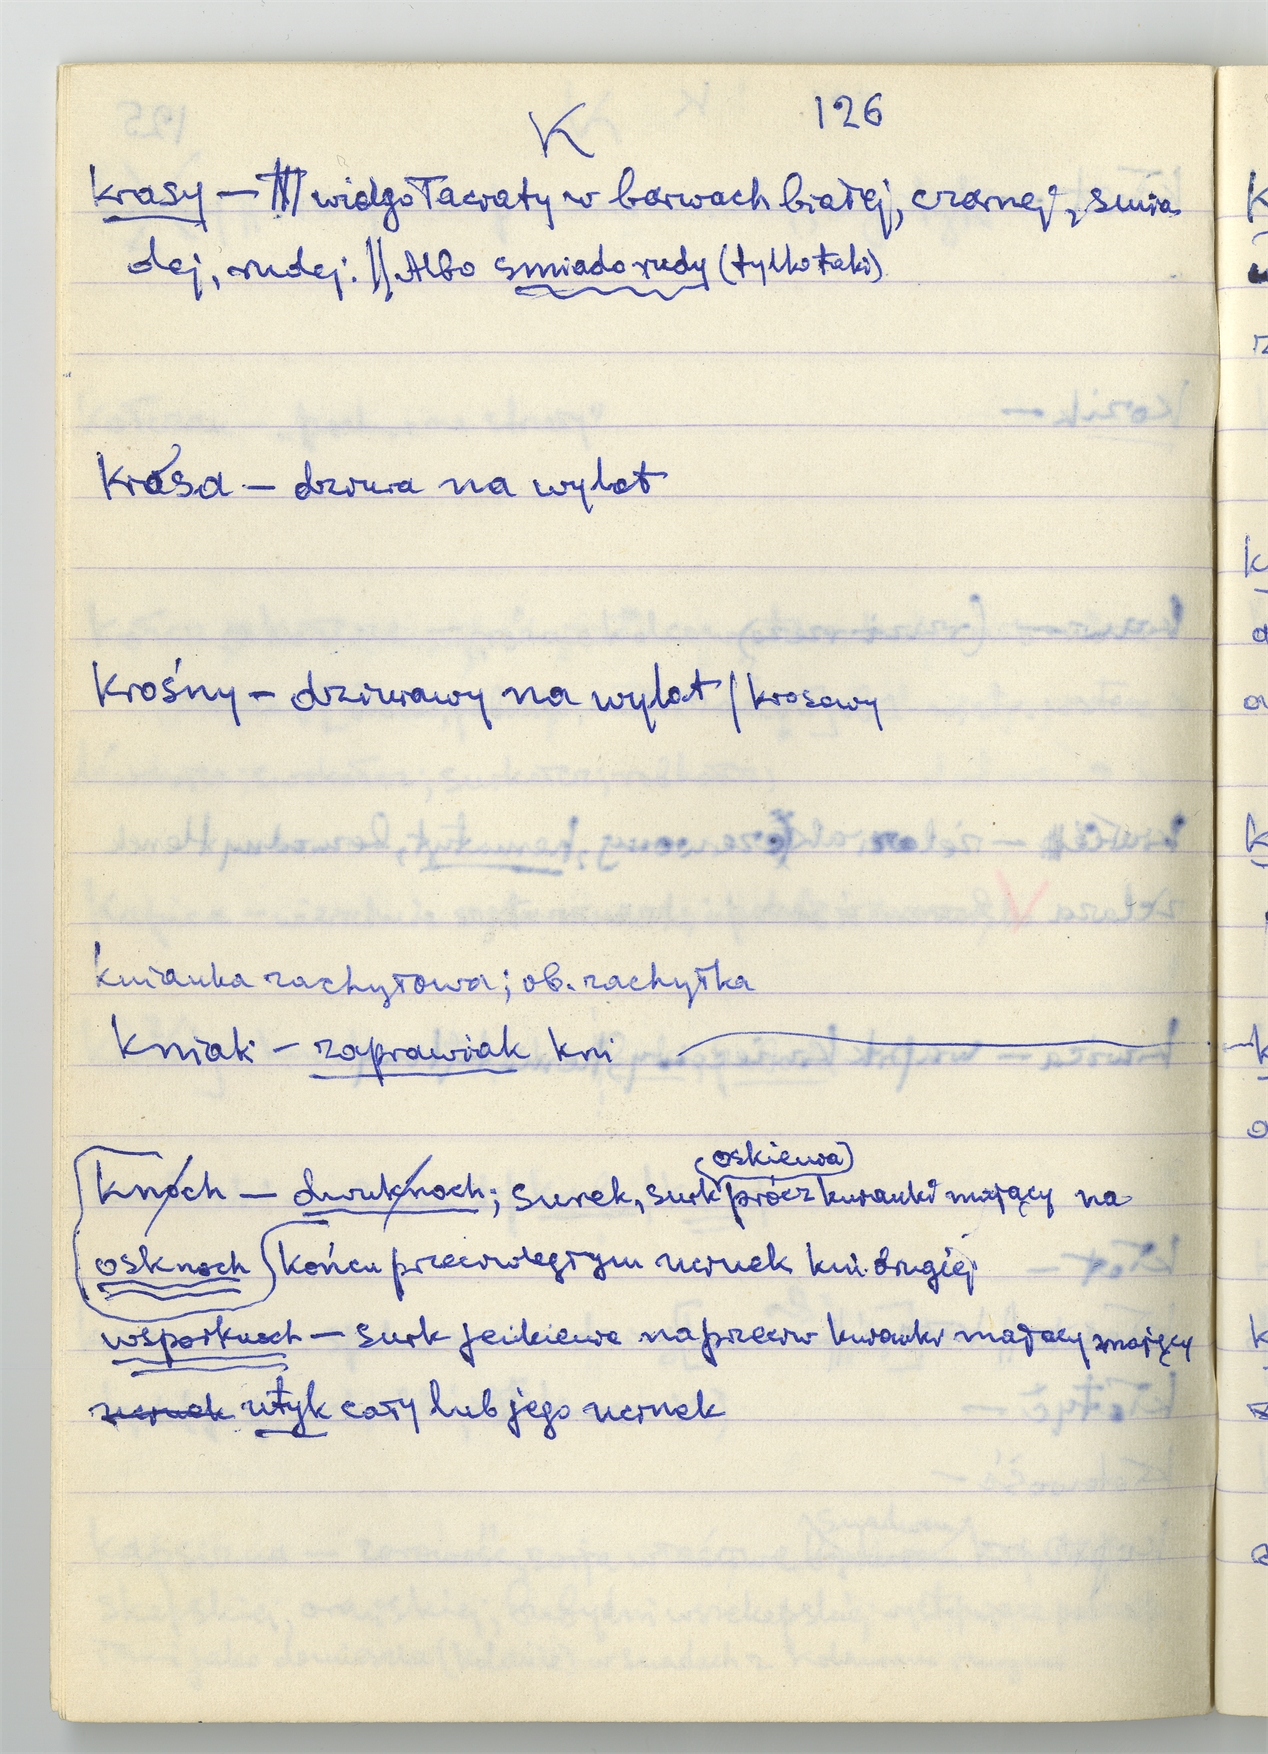 K 126
krasy — widgołaciaty w barwach białej, czarnej, śmia
dej, rudej. || Albo śmiadorudy (tylko taki)
Krósa — dziura na wylot
Krośny — dziurawy na wylot / krosowy
knianka zachyłowa; ob. zachyłka
Kniak — zaprawiak kni
oskiewa
knoch — dwuknoch; surek, surk prócz knianki mający na
osknoch końcu przeciwległym ucinek kni drugiej
wspołknoch — surk jenkiewe naprzeciw knianki mający mający
ucinek utyk cały lub jego ucinek